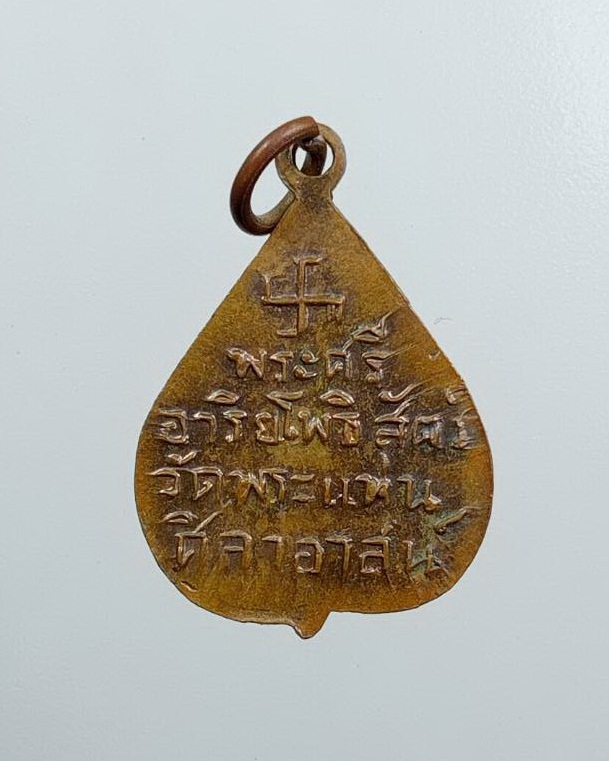 พระศรี
อาริยโพธิสัตว์
วัดพระแท่น
ศิลาอาสน์